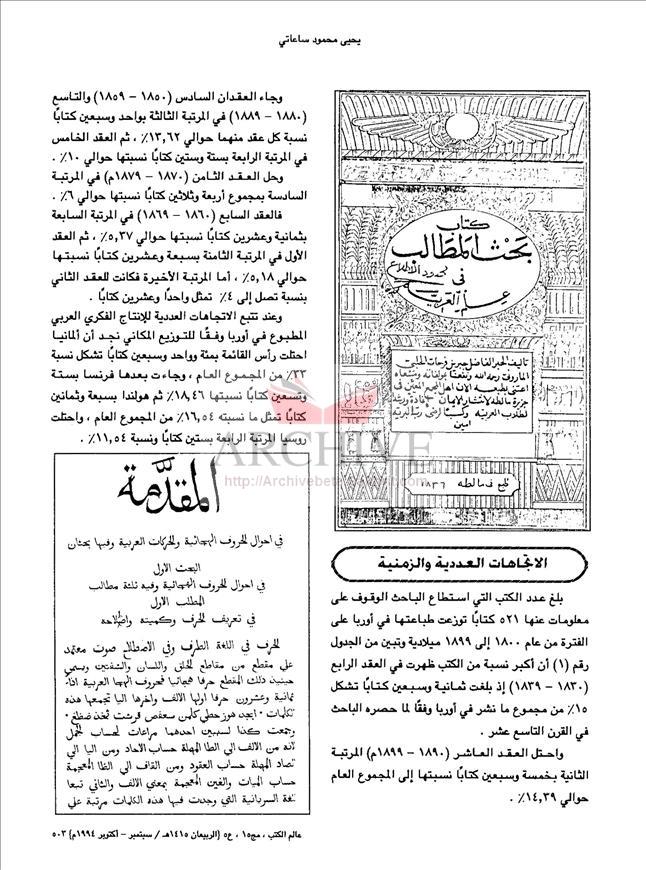 يحيى محمود ساعاتي
كتاب
بحث المطالب
في
علم العربية
طبع في مالطه ١٨٣٦
الاتجاهات العددية والزمنية
بلغ عدد الكتب التي استطاع الباحث الوقوف على
معلومات عنها ٥٢١ كتابًا توزعت طباعتها في أوربا على
الفترة من عام ١٨٠٠ إلى ١٨٩٩ ميلادية وتبين من الجدول
رقم (١) أن أكبر نسبة من الكتب ظهرت في العقد الرابع
(١٨٣٠ – ١٨٣٩) إذ بلغت ثمانية وسبعين كتابًا تشكل
١٥٪ من مجموع ما نشر في أوربا وفقًا لما حصره الباحث
في القرن التاسع عشر .
واحتل العقد العاشر (١٨٩٠ – ١٨٩٩م) المرتبة
الثانية بخمسة وسبعين كتابًا نسبتها إلى المجموع العام
حوالي ١٤,٣٩٪ .
وجاء العقدان السادس (١٨٥٠ – ١٨٥٩) والتاسع
(١٨٨٠ – ١٨٨٩) في المرتبة الثالثة بواحد وسبعين كتابًا
نسبة كل عقد منهما حوالي ١٣,٦٢٪ ، ثم العقد الخامس
في المرتبة الرابعة بستة وستين كتابًا نسبتها حوالي ١٠٪ .
وحل العقد الثامن (١٨٧٠ – ١٨٧٩م) في المرتبة
السادسة بمجموع أربعة وثلاثين كتابًا نسبتها حوالي ٦٪ .
فالعقد السابع (١٨٦٠ – ١٨٦٩) في المرتبة السابعة
بثمانية وعشرين كتابًا نسبتها حوالي ٥,٣٧٪ ، ثم العقد
الأول في المرتبة الثامنة بسبعة وعشرين كتابًا نسبتها
حوالي ٥,١٨٪ ، أما المرتبة الأخيرة فكانت للعقد الثاني
بنسبة تصل إلى ٤٪ تمثل واحدًا وعشرين كتابًا .
وعند تتبع الاتجاهات العددية للإنتاج الفكري العربي
المطبوع في أوربا وفقًا للتوزيع المكاني نجد أن ألمانيا
احتلت رأس القائمة بمئة وواحد وسبعين كتابًا تشكل نسبة
٣٣٪ من المجموع العام ، وجاءت بعدها فرنسا بستة
وتسعين كتابًا نسبتها ١٨,٤٦٪ ثم هولندا بسبعة وثمانين
كتابًا تمثل ما نسبته ١٦,٥٤٪ من المجموع العام ، واحتلت
روسيا المرتبة الرابعة بستين كتابًا ونسبة ١١,٥٤٪ .
المقدَّمة
في احوال الحروف الهجائية والحركات العربية وفيها بحثان
البحث الاول
في احوال الحروف الهجائية وفيه ثلثة مطالب
المطلب الاول
في تعريف الحرف وكميته واصطلاحه
الحرف في اللغة الطرف وفي الاصطلاح صوت معتمد
علي مقطع من مقاطع الحلق واللسان والشفتين ويسمي
حينيذ ذلك المقطع حرفا هجائيا فحروف الهجا العربية اذا
ثمانية وعشرون حرفا اولها الالف واخرها اليا تجمعها هذه
الكلمات ٠ ابجد هوز حطي كلمن سعفص قرشت ثخذ ضظغ ٠
وجمعت كذا لسببين احدهما مراعات لحساب الجمل
لانه من الالف الي الطا المهملة حساب الاحاد ومن اليا الي
الصاد المهملة حساب العقود ومن القاف الي الظا المعجمة
حساب الميات والغين المعجمة بمعني الالف والثاني تبعا
للغة السريانية التي وجدت فيها هذه الكلمات مرتبة علي
ARCHIVE
عالم الكتب ، مج١٥ ، ع٥ (الربيعان ١٤١٥هـ / سبتمبر – أكتوبر ١٩٩٤م) ٥٠٣